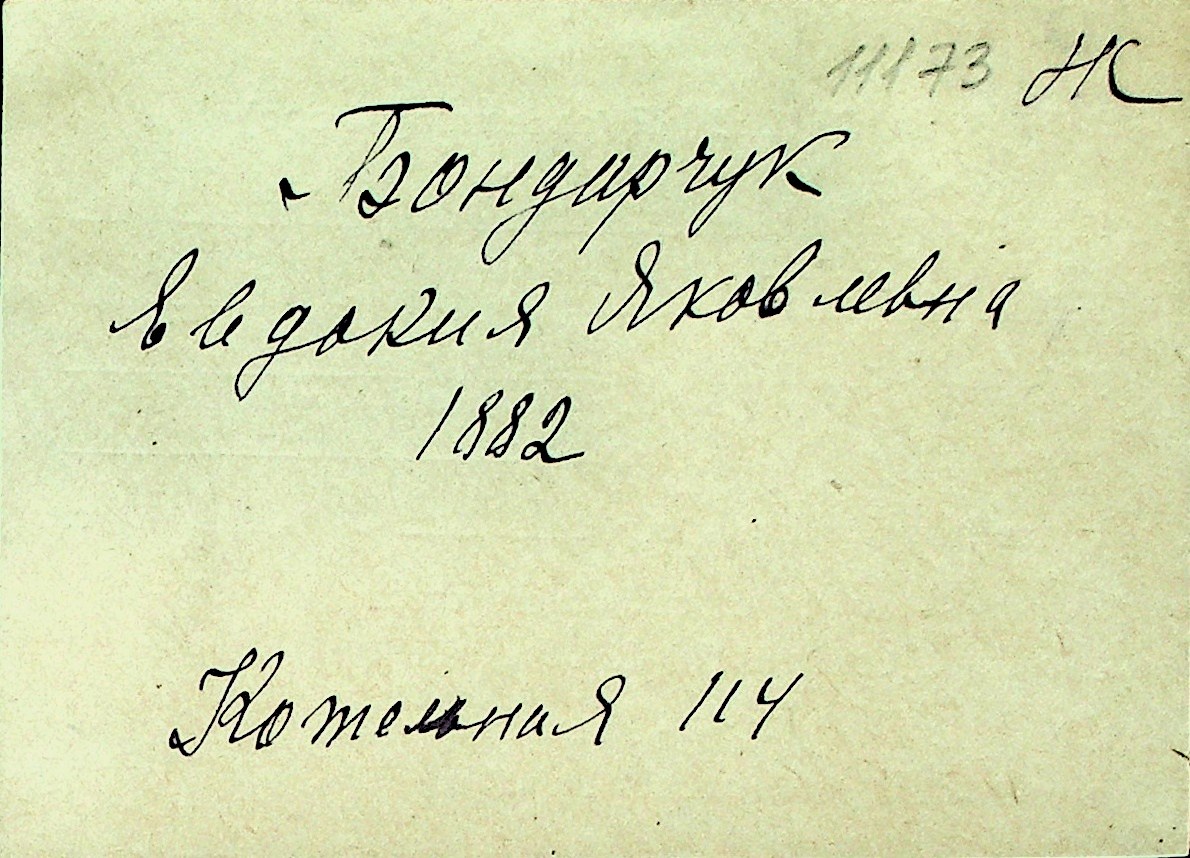 11173 Ж
Бондарчук
Евдокия Яковлевна
1882
Котельная 114